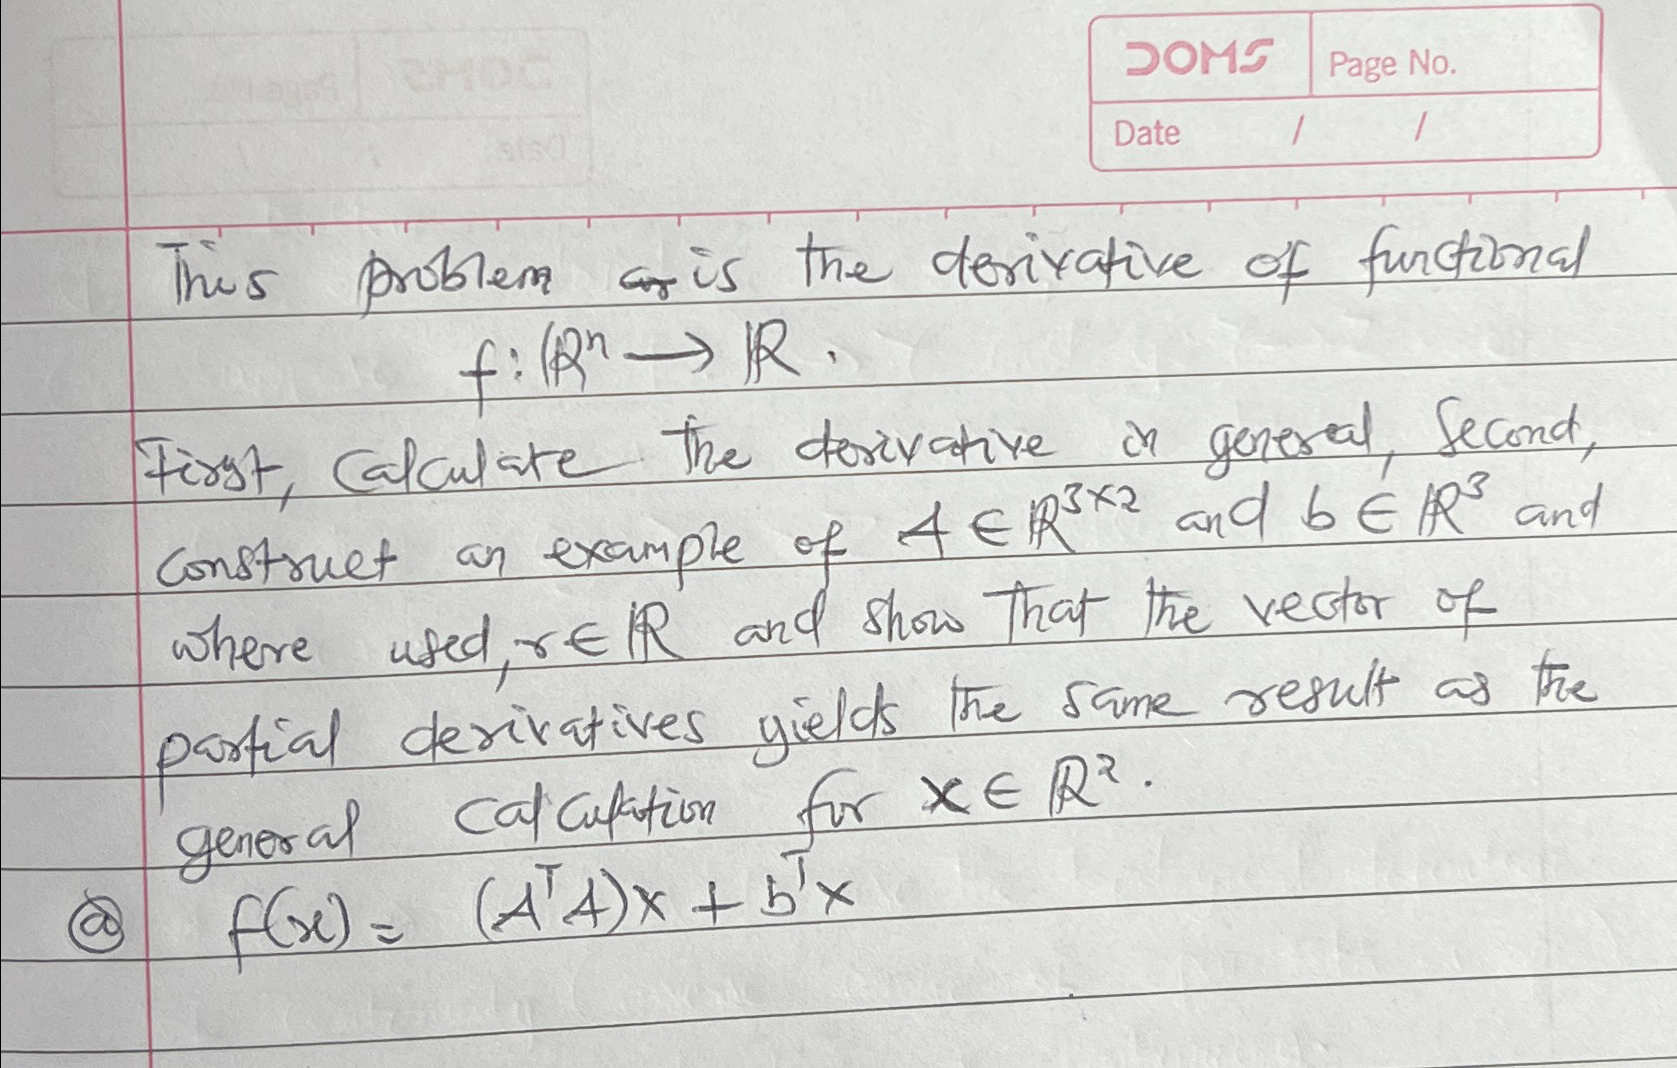 DOMS Page No.
Date / /
This problem is the derivative of functional
f: ℝⁿ → ℝ.
First, Calculate the derivative in general, Second,
construct an example of A ∈ ℝ³ˣ² and b ∈ ℝ³ and
where used, r ∈ ℝ and show that the vector of
partial derivatives yields the same result as the
general calculation for x ∈ ℝ².
ⓐ f(x) = (AᵀA)x + bᵀx